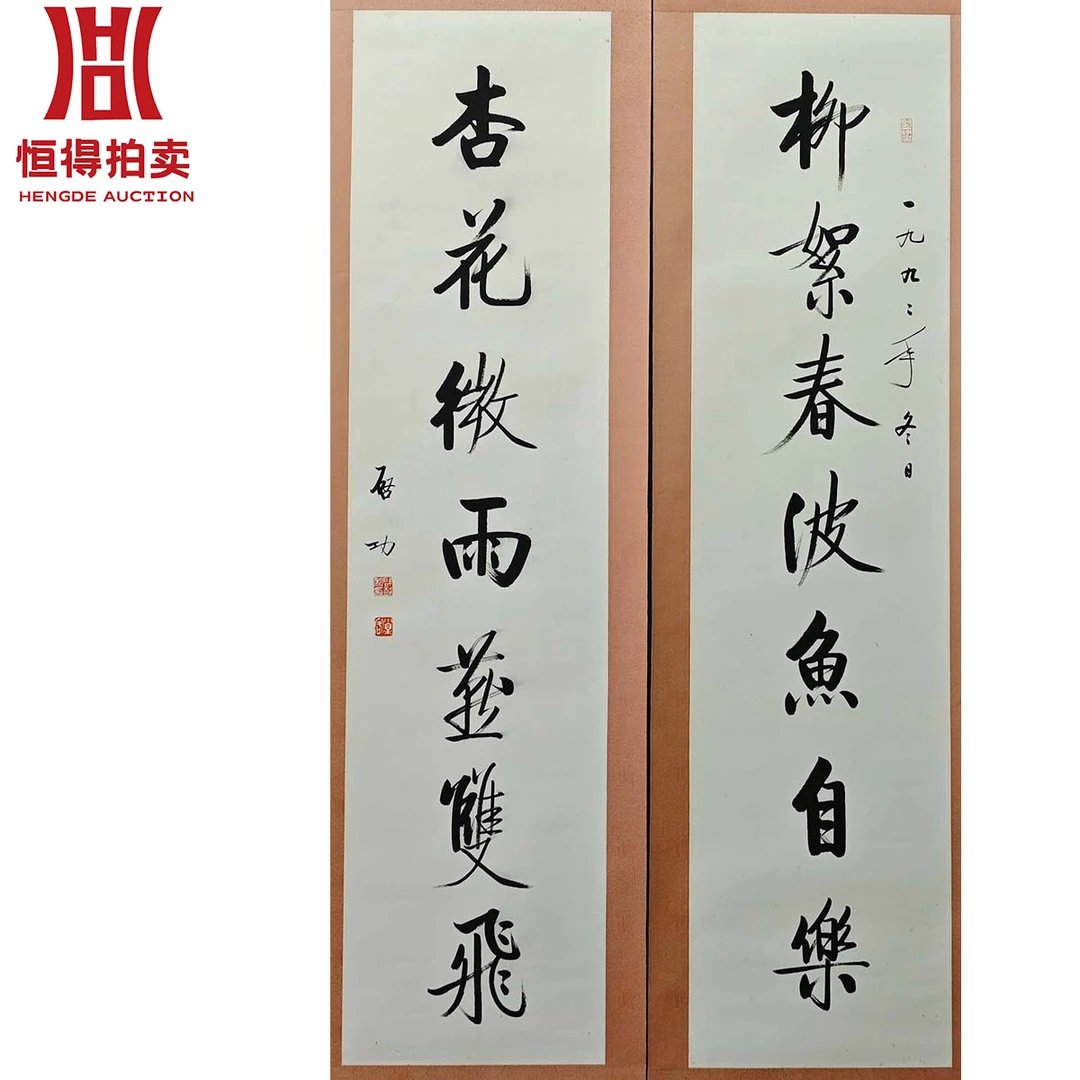 恒得拍卖
HENGDE AUCTION
一九九二年冬日
柳絮春波魚自樂
杏花微雨燕雙飛
啟功